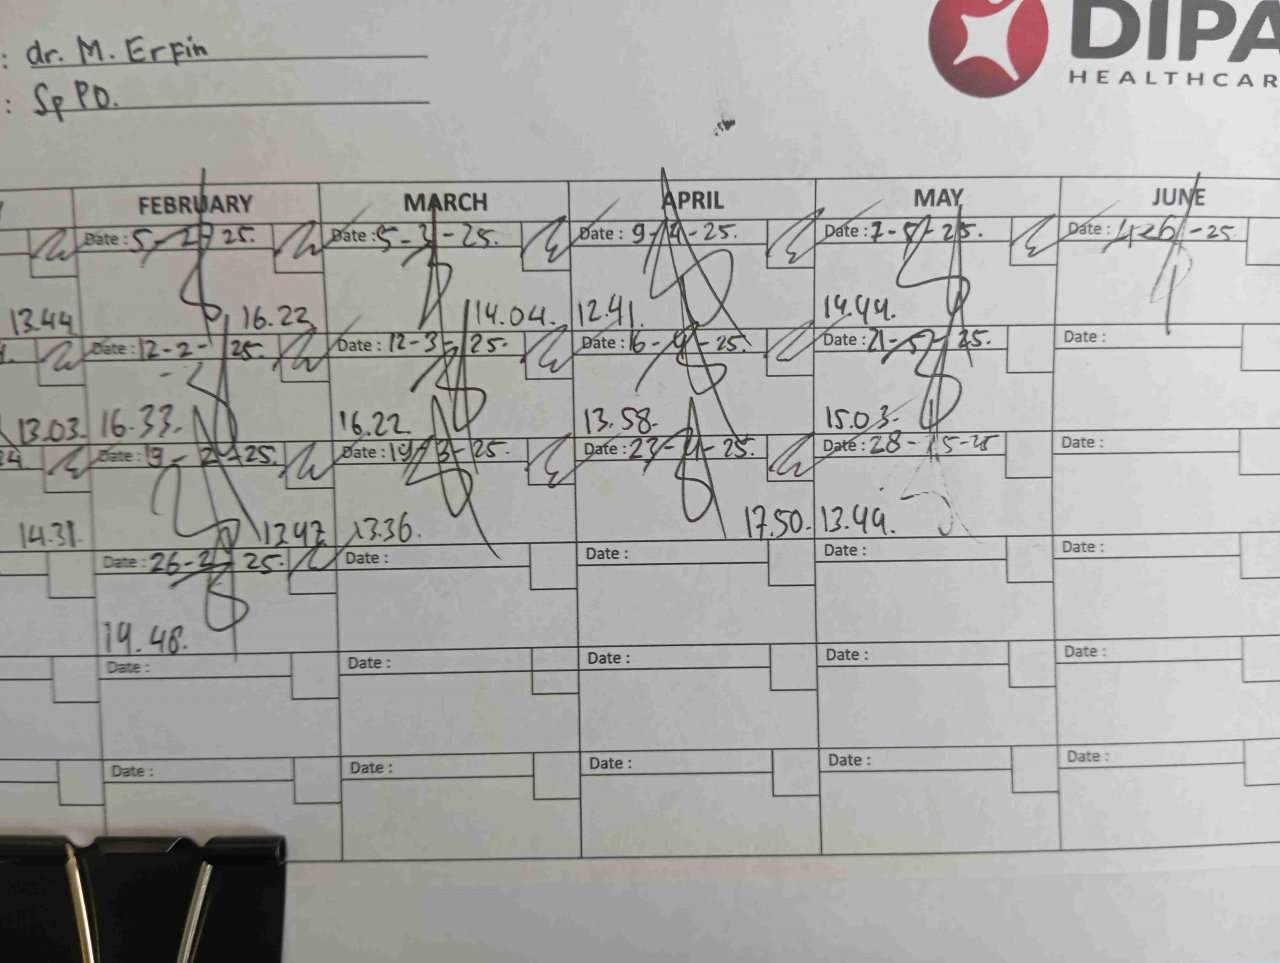 : dr. M. Erfin
: Sp PD.
DIPA
HEALTHCAR
FEBRUARY MARCH APRIL MAY JUNE
Date : 5-2-25. Date : 5-3-25. Date : 9-4-25. Date : 7-5-25. Date : 4-6-25.
13.44 16.23 14.04. 12.41. 14.44.
Date : 12-2-25. Date : 12-3-25. Date : 16-4-25. Date : 21-5-25. Date :
13.03. 16.33. 16.22. 13.58. 15.03.
24. Date : 19-2-25. Date : 19-3-25. Date : 23-4-25. Date : 28-5-25 Date :
14.31. 13.36. 17.50. 13.49.
Date : 26-2-25. Date : Date : Date : Date :
14.48.
Date : Date : Date : Date : Date :
Date : Date : Date : Date : Date :